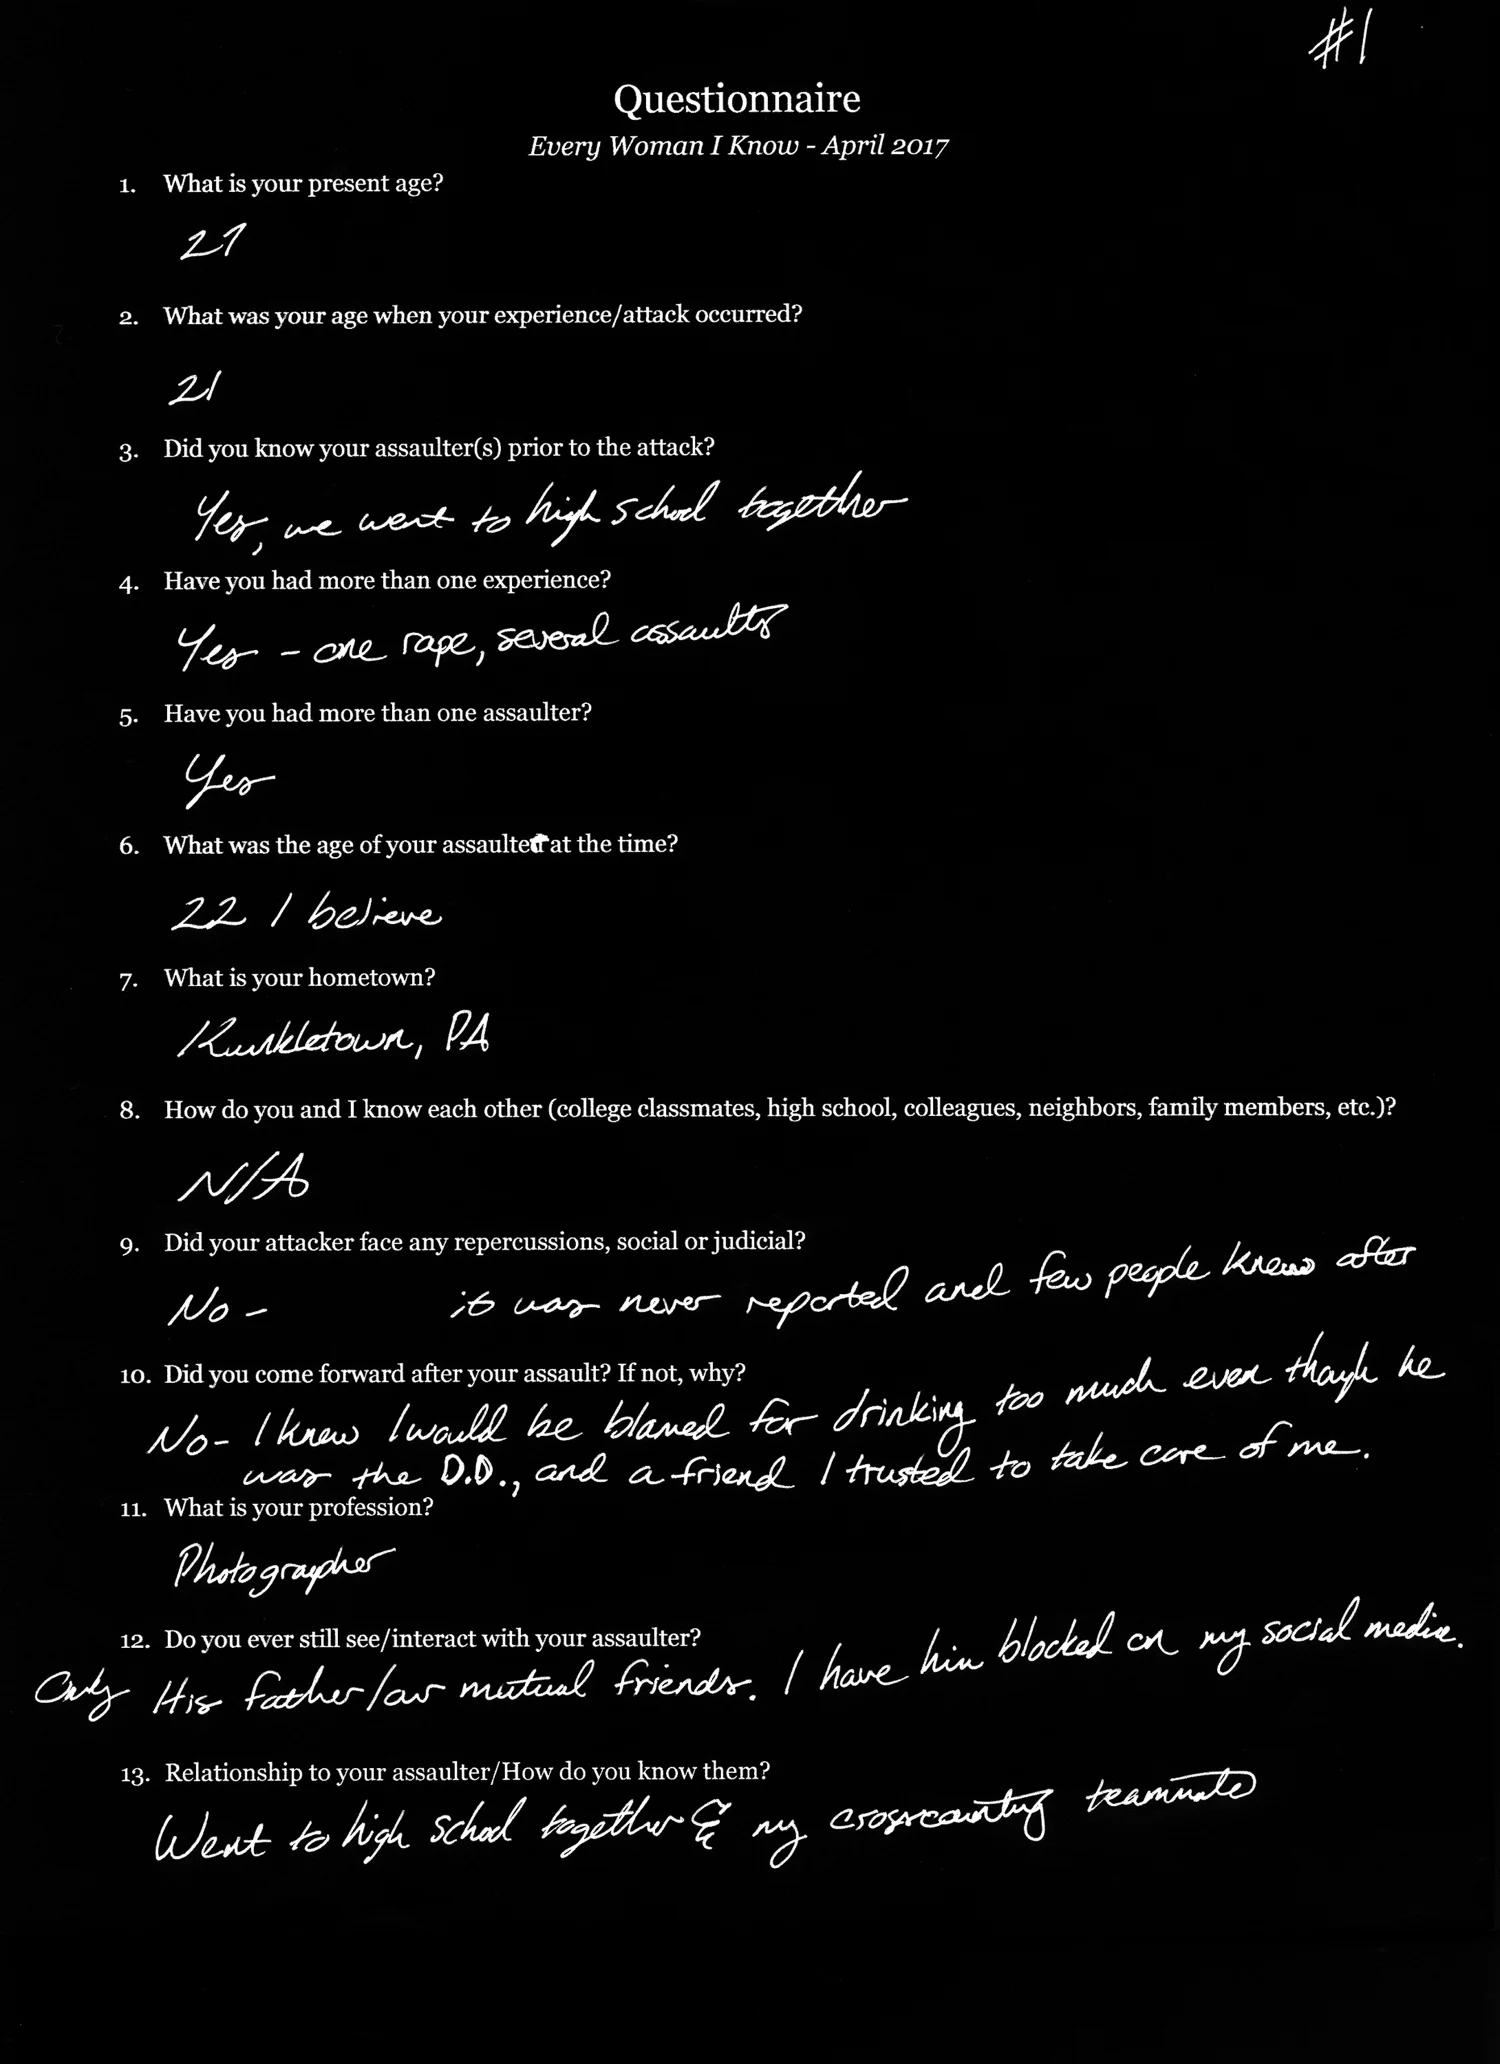 #1
Questionnaire
Every Woman I Know - April 2017
1. What is your present age?
27
2. What was your age when your experience/attack occurred?
21
3. Did you know your assaulter(s) prior to the attack?
Yes, we went to high school together
4. Have you had more than one experience?
Yes - one rape, several assaults
5. Have you had more than one assaulter?
Yes
6. What was the age of your assaulter at the time?
22 I believe
7. What is your hometown?
Kunkletown, PA
8. How do you and I know each other (college classmates, high school, colleagues, neighbors, family members, etc.)?
N/A
9. Did your attacker face any repercussions, social or judicial?
No - it was never reported and few people knew after
10. Did you come forward after your assault? If not, why?
No - I knew I would be blamed for drinking too much even though he
was the D.D., and a friend I trusted to take care of me.
11. What is your profession?
Photographer
12. Do you ever still see/interact with your assaulter?
Only His father/our mutual friends. I have him blocked on my social media.
13. Relationship to your assaulter/How do you know them?
Went to high school together & my crosscountry teammate